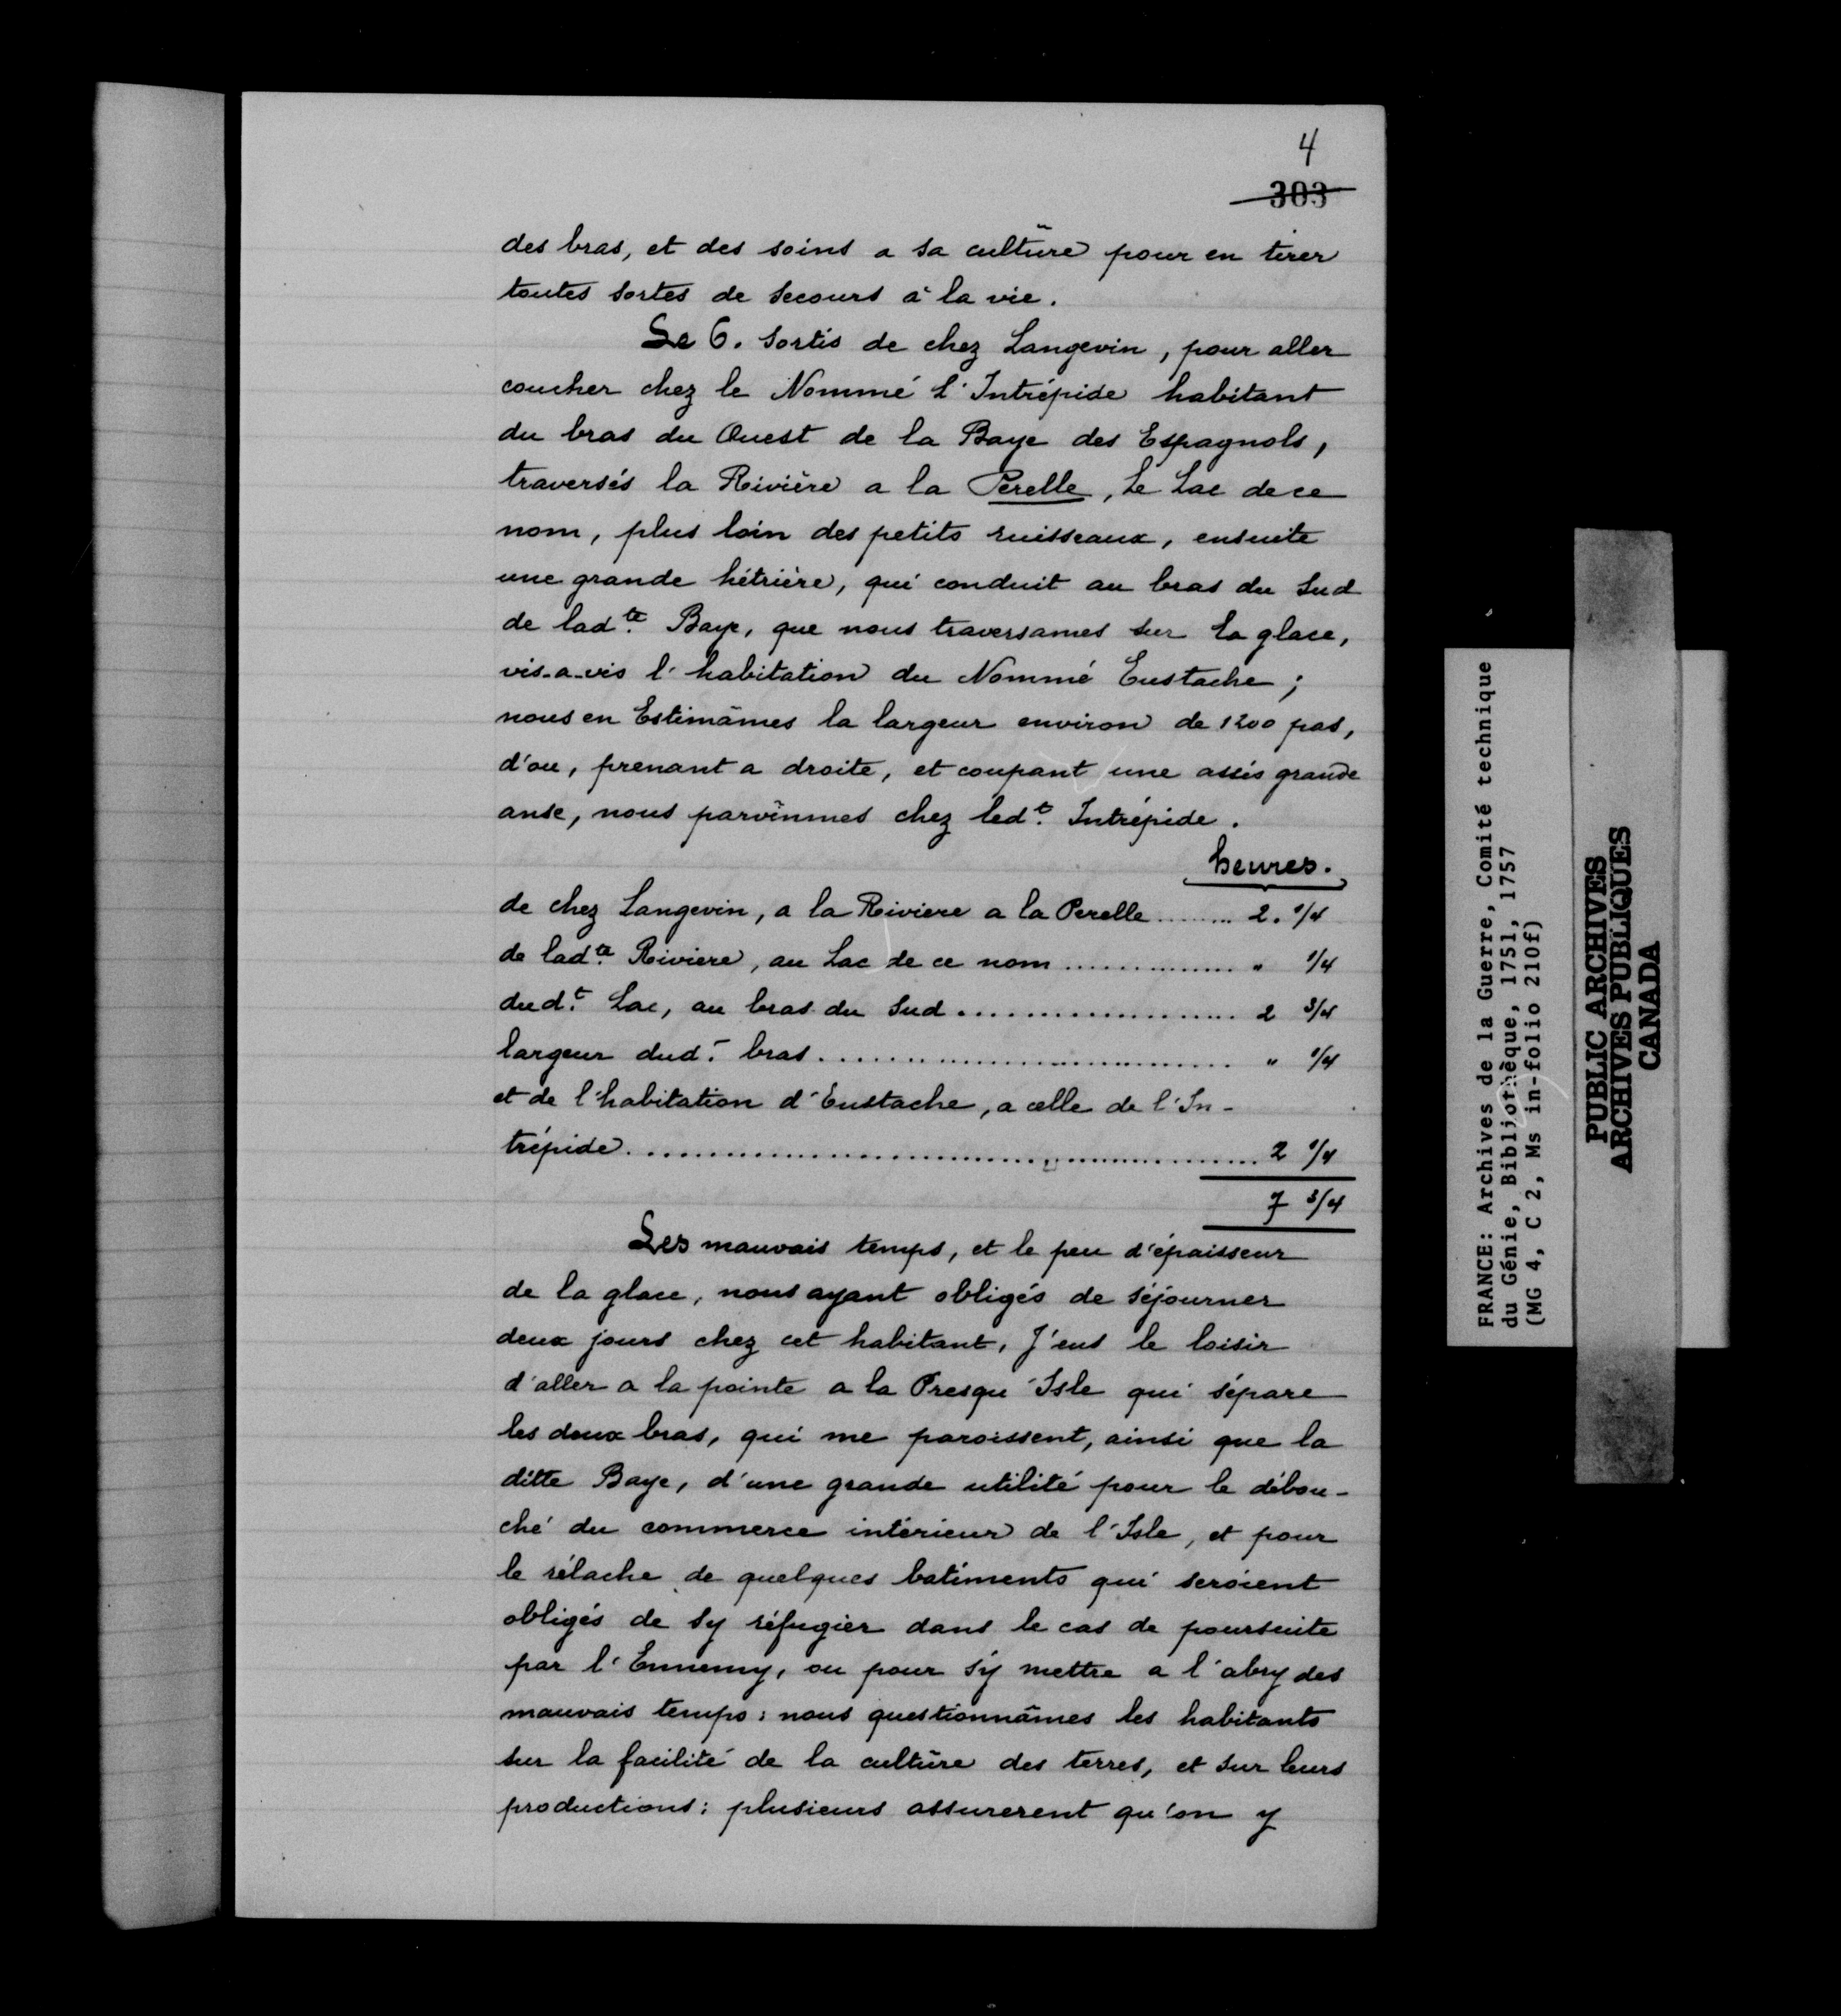 4
303
des bras, et des soins a sa cultûre pour en tirer
toutes sortes de secours à la vie.
Le 6. Sortis de chez Langevin, pour aller
coucher chez le Nommé l'Intrépide habitant
du bras du Ouest de la Baye des Espagnols,
traversés la Rivière a la Perelle, Le Lac de ce
nom, plus loin des petits ruisseaux, ensuite
une grande hétrière, qui conduit au bras du Sud
de lad.te Baye, que nous traversames sur la glace,
vis-a-vis l'habitation du Nommé Eustache;
nous en Estimâmes la largeur environ de 1200 pas,
d'ou, prenant a droite, et coupant une assés grande
anse, nous parvînmes chez led.t Intrépide.
heures.
de chez Langevin, a la Riviere a la Perelle ........ 2. 1/4
de lad.te Riviere, au Lac de ce nom ............... " 1/4
dud.t Lac, au bras du Sud ..................... 2 3/4
largeur dud.t bras .............................. " 1/4
et de l'habitation d'Eustache, a celle de l'In-
trépide ............................................. 2 1/4
7 3/4
Les mauvais temps, et le peu d'épaisseur
de la glace, nous ayant obligés de séjourner
deux jours chez cet habitant, J'eus le loisir
d'aller a la pointe a la Presqu'Isle qui sépare
les deux bras, qui me paroissent, ainsi que la
ditte Baye, d'une grande utilité pour le débou-
ché du commerce intérieur de l'Isle, et pour
le rélache de quelques batiments qui seroient
obligés de sy réfugier dans le cas de poursuite
par l'Ennemy, ou pour s'y mettre a l'abry des
mauvais temps: nous questionnâmes les habitants
sur la facilité de la cultûre des terres, et sur leurs
productions: plusieurs assurerent qu'on y
FRANCE: Archives de la Guerre, Comité technique
du Génie, Bibliothèque, 1751, 1757
(MG 4, C 2, Ms in-folio 210f)
PUBLIC ARCHIVES
ARCHIVES PUBLIQUES
CANADA